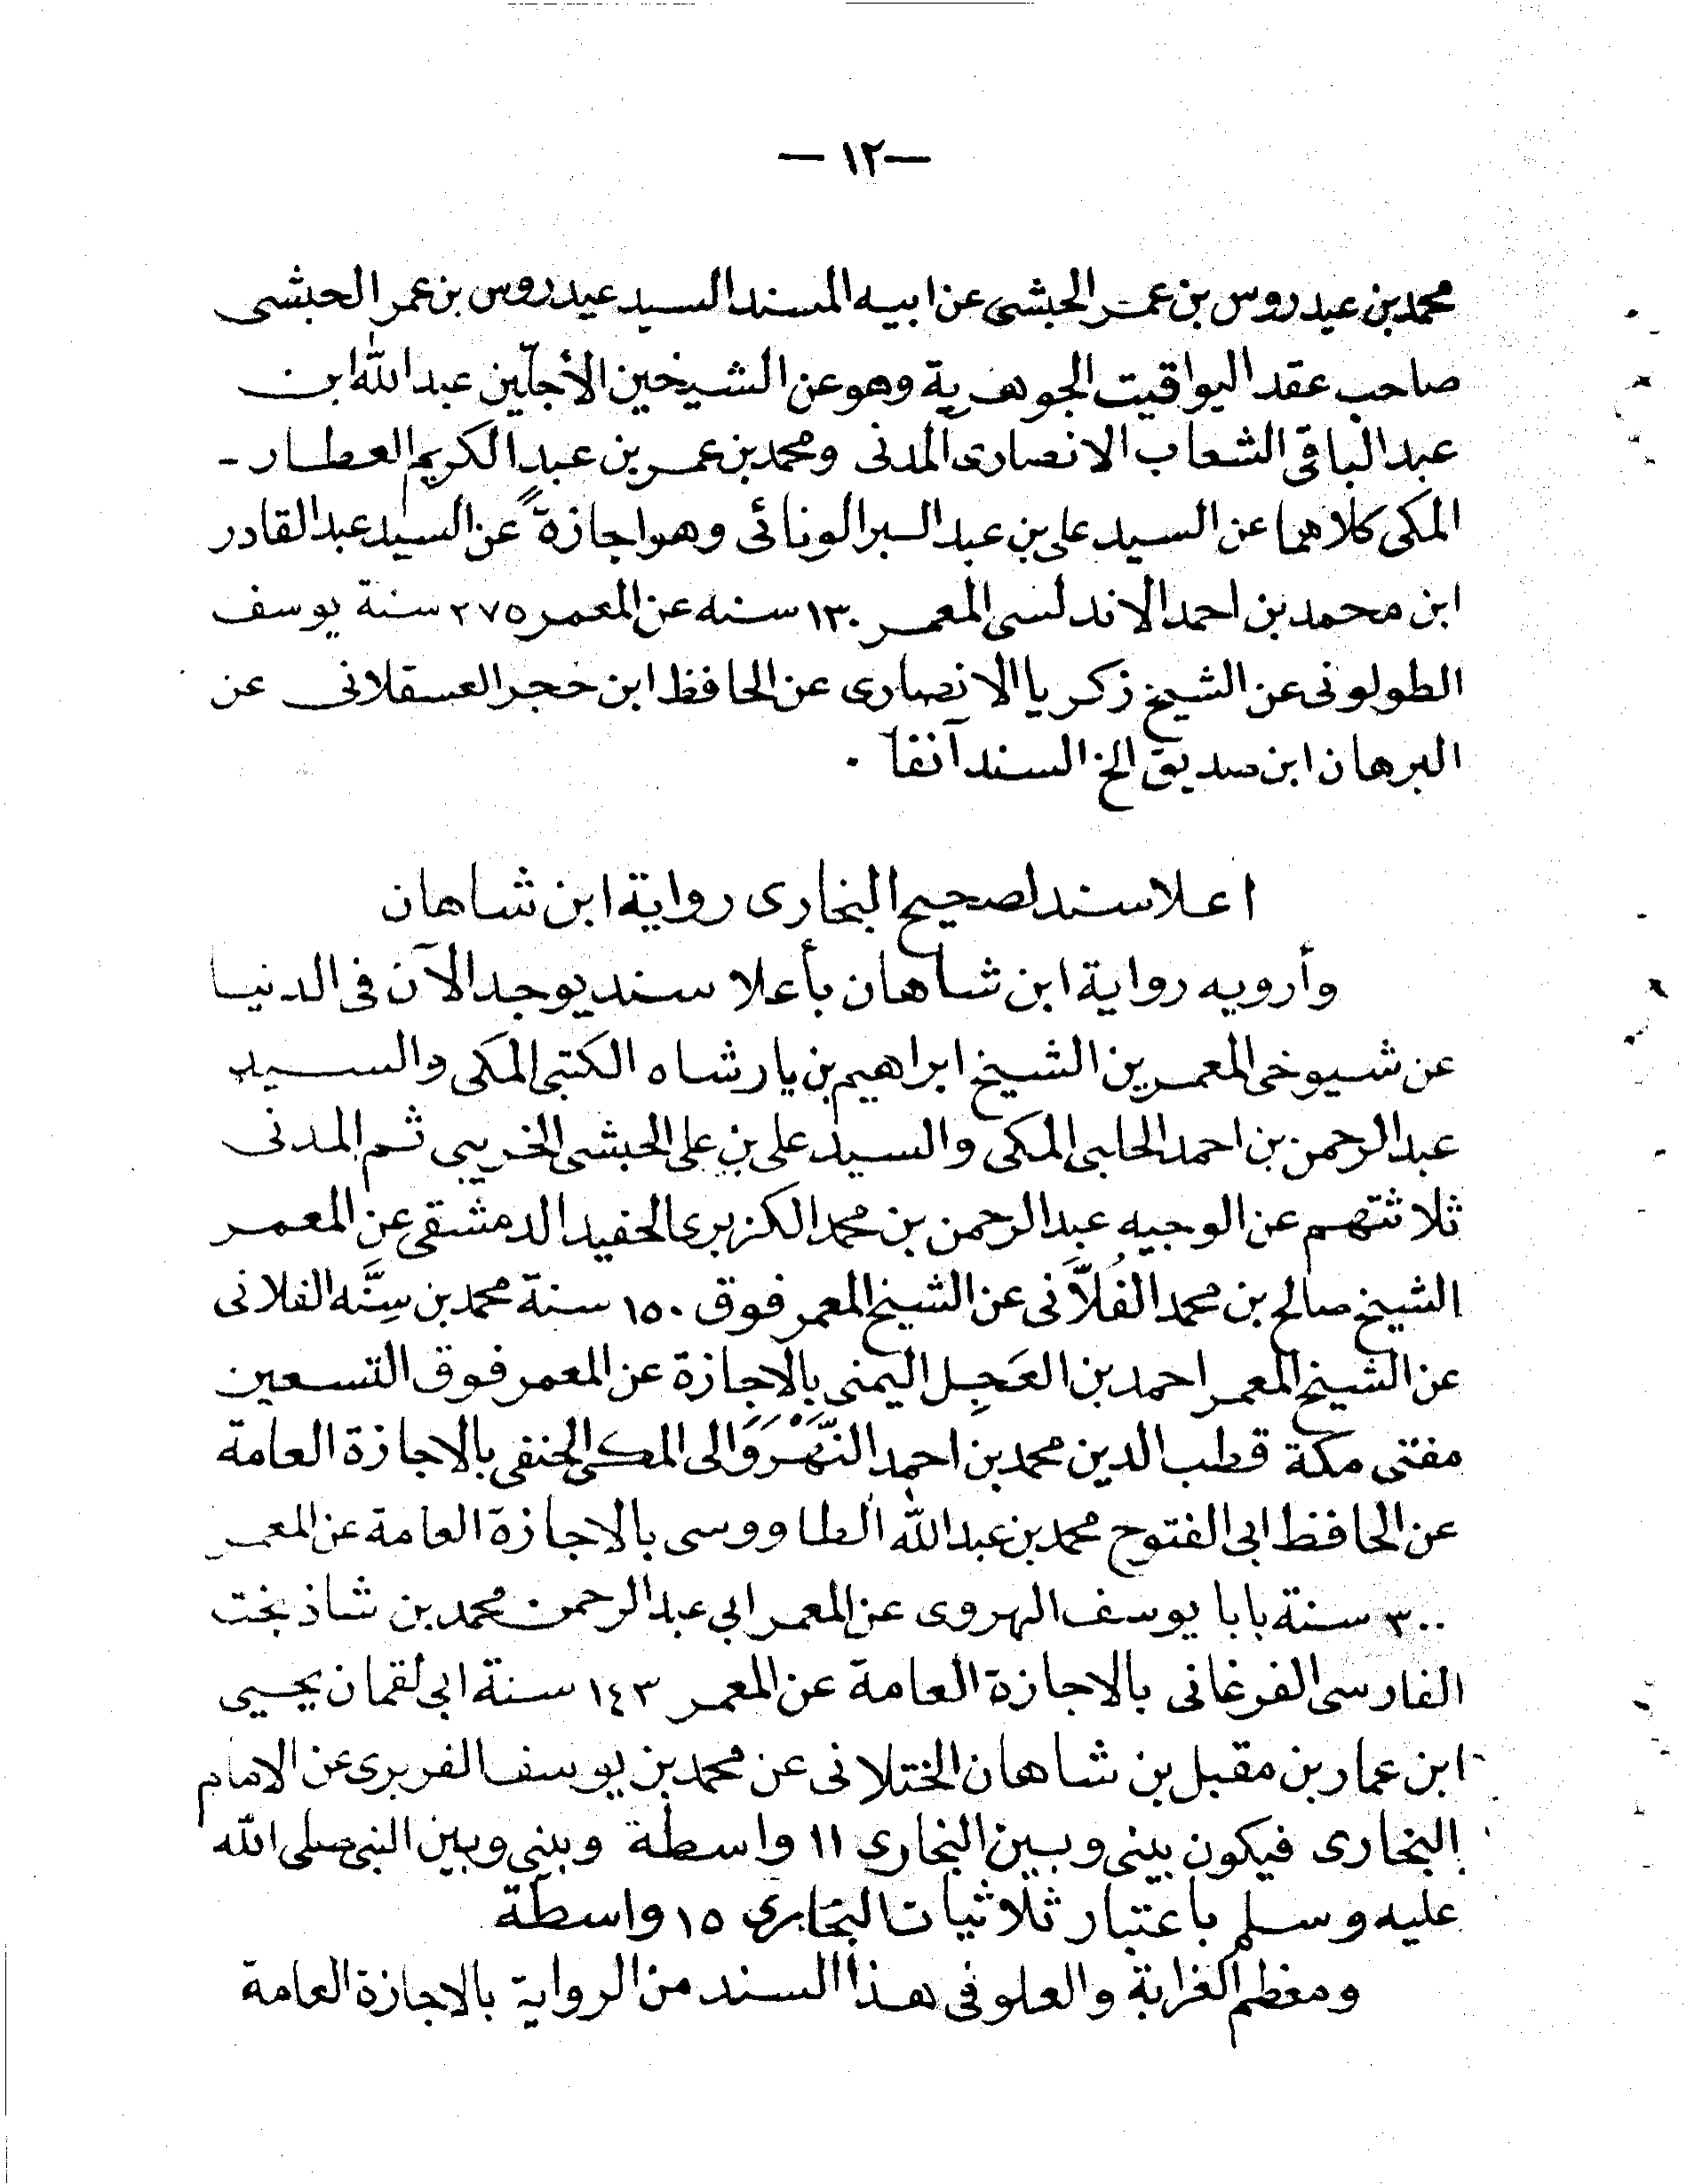 — ١٢ —
محمد بن عيدروس بن عمر الحبشى عن ابيه المسند السيد عيدروس بن عمر الحبشى
صاحب عقد اليواقيت الجوهرية وهو عن الشيخين الأجلّين عبد الله ابن
عبد الباقى الشعاب الانصارى المدنى ومحمد بن عمر بن عبد الكريم العطار -
المكى كلاهما عن السيد على بن عبد البر الونائى وهو اجازةً عن السيد عبد القادر
ابن محمد بن احمد الاندلسى المعمر ١٣٠ سنه عن المعمر ٢٧٥ سنة يوسف
الطولونى عن الشيخ زكريا الانصارى عن الحافظ ابن حجر العسقلانى عن
البرهان ابن صديق الخ السند آنفا .
اعلا سند لصحيح البخارى رواية ابن شاهان
وأرويه رواية ابن شاهان بأعلا سند يوجد الآن فى الدنيا
عن شيوخى المعمرين الشيخ ابراهيم بن يارشاه الكتبى المكى والسيد
عبد الرحمن بن احمد الحلبى المكى والسيد على بن على الحبشى الخريبى ثم المدنى
ثلاثتهم عن الوجيه عبد الرحمن بن محمد الكزبرى الحفيد الدمشقى عن المعمر
الشيخ صالح بن محمد الفُلاَّنى عن الشيخ المعمر فوق ١٥٠ سنة محمد بن سِنَّه الفلانى
عن الشيخ المعمر احمد بن العَجِل اليمنى بالاجازة عن المعمر فوق التسعين
مفتى مكة قطب الدين محمد بن احمد النَّهْرَوَالى المكى الحنفى بالاجازة العامة
عن الحافظ ابى الفتوح محمد بن عبد الله الطاووسى بالاجازة العامة عن المعمر
٣٠٠ سنة بابا يوسف الهروى عن المعمر ابي عبد الرحمن محمد بن شاذ بخت
الفارسى الفرغانى بالاجازة العامة عن المعمر ١٤٣ سنة ابى لقمان يحيى
ابن عمار بن مقبل بن شاهان الختلانى عن محمد بن يوسف الفربرى عن الامام
البخارى فيكون بينى وبين البخارى ١١ واسطة وبينى وبين النبى صلى الله
عليه وسلم باعتبار ثلاثيات البخارى ١٥ واسطة
ومعظم الغرابة والعلو فى هذا السند من الرواية بالاجازة العامة